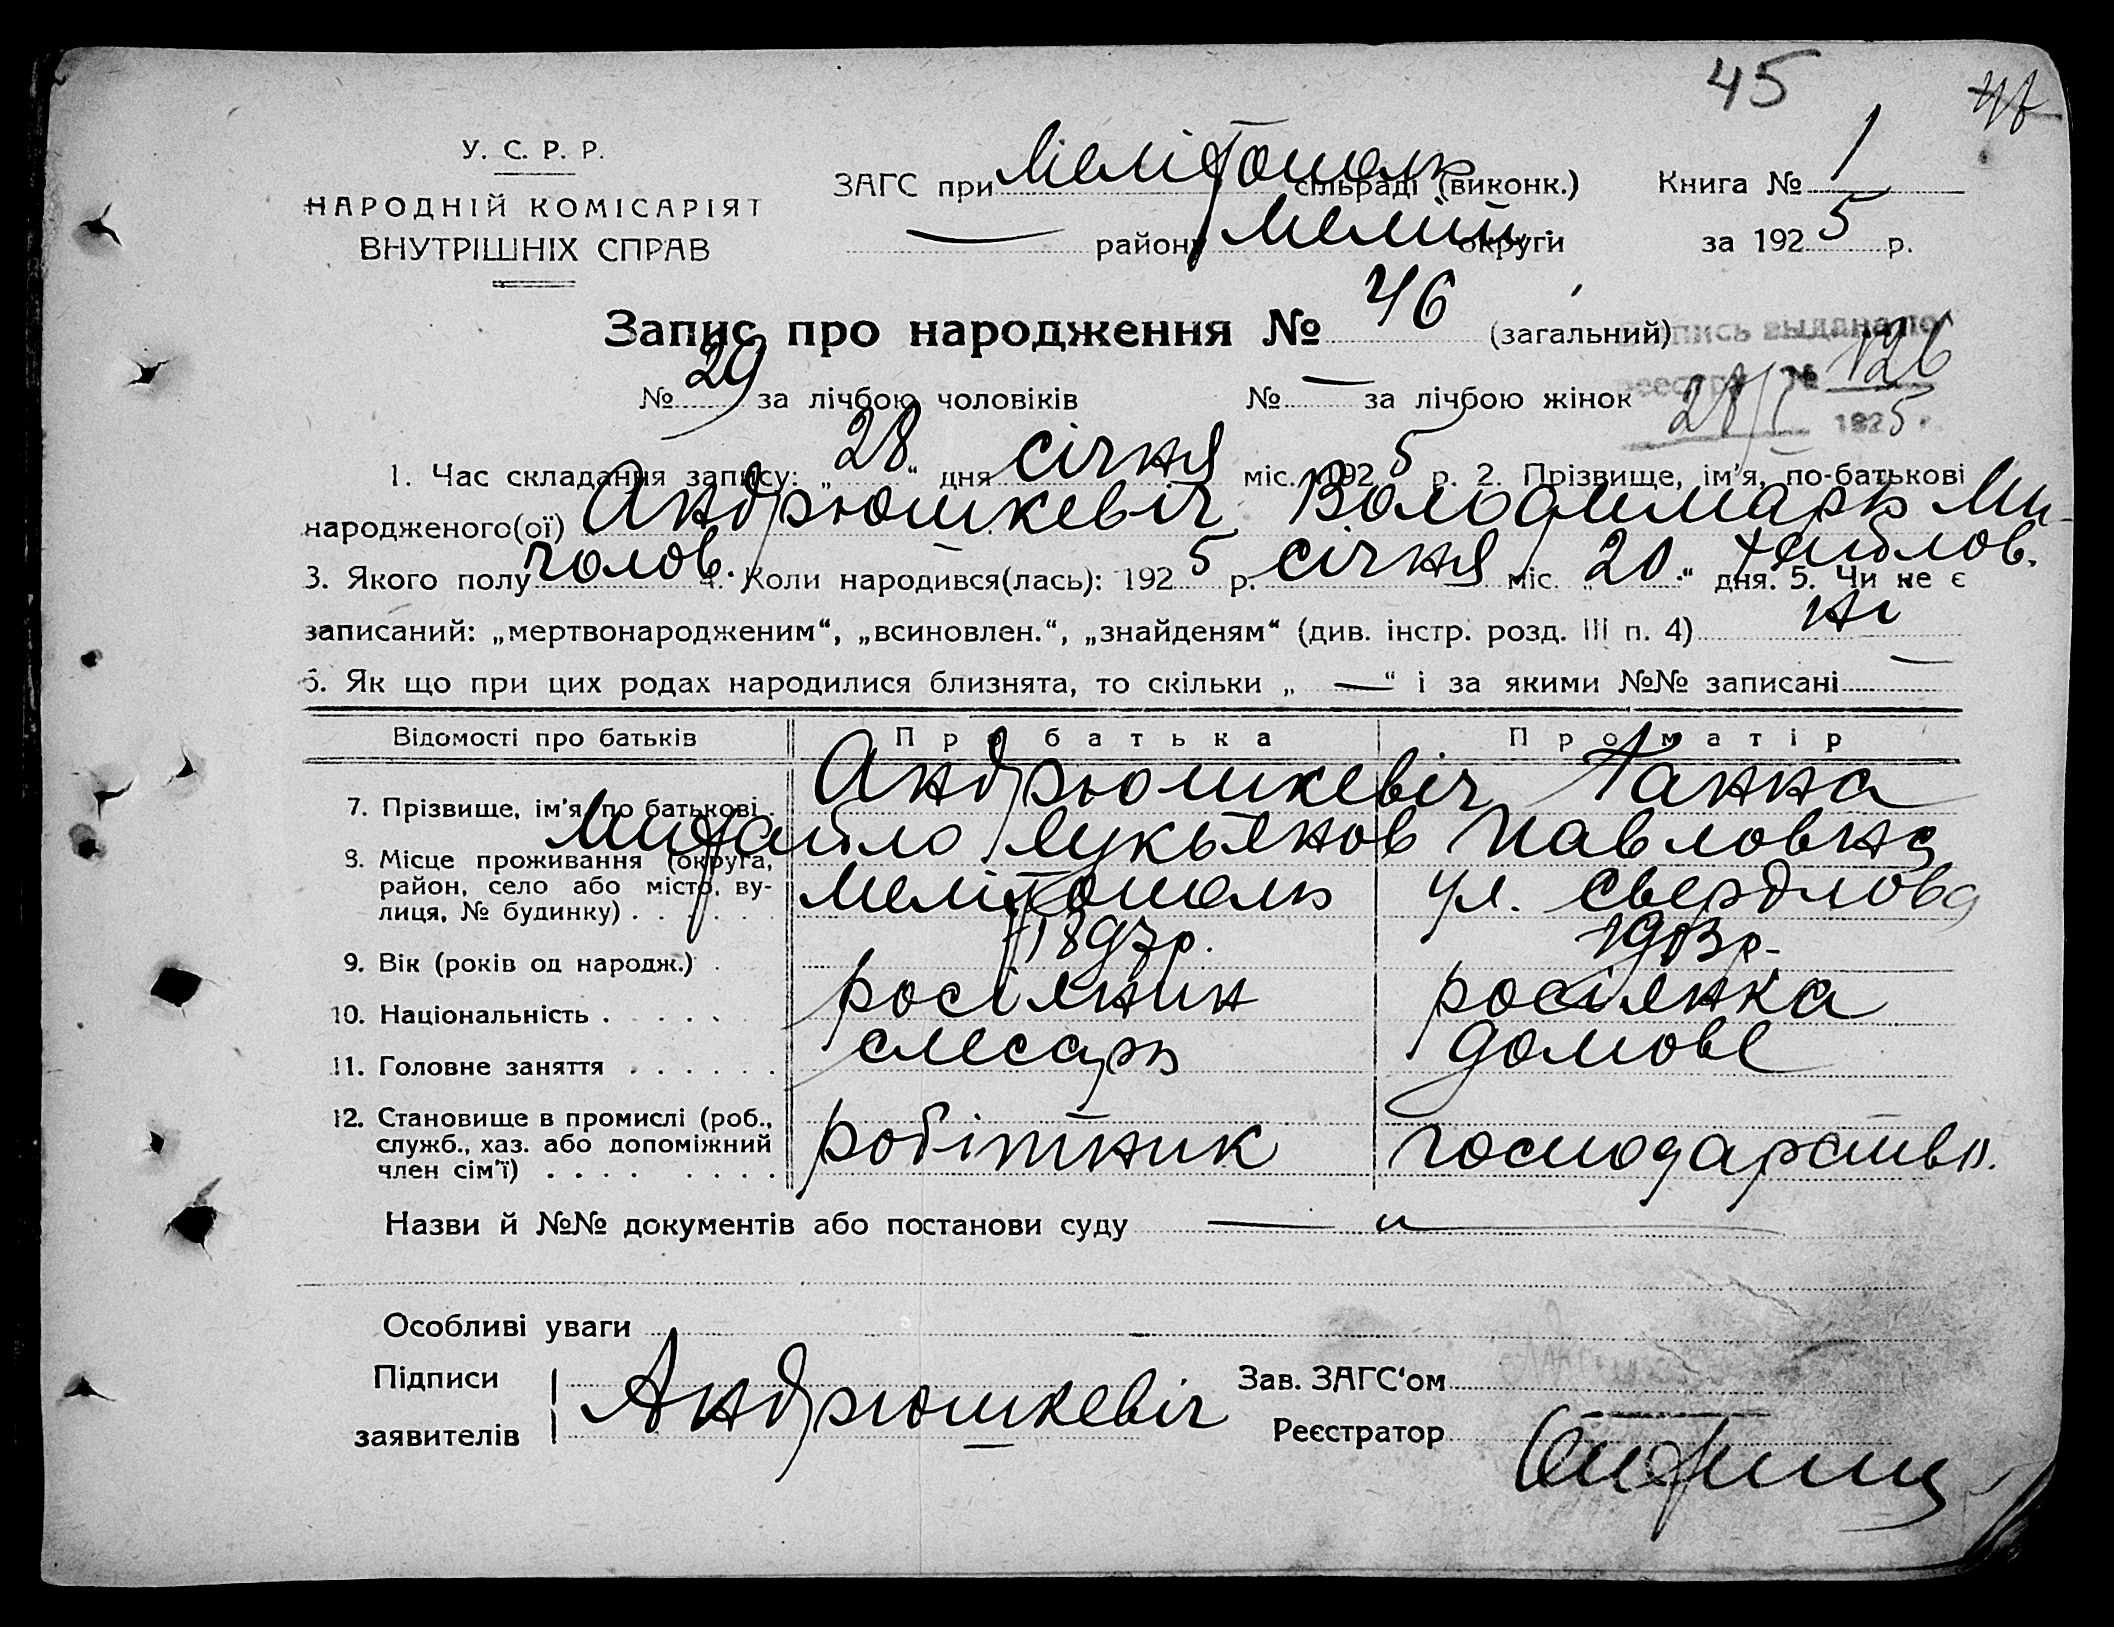 45
У. С. Р. Р.
НАРОДНІЙ КОМІСАРІЯТ
ВНУТРІШНІХ СПРАВ
ЗАГС при Мелітополь сільраді (виконк.)
— району Меліт. округи
Книга № 1
за 1925 р.
Запис про народження № 46 (загальний)
№ 29 за лічбою чоловіків № — за лічбою жінок
выдана по
реестру № 126
28/I 1925 г.
1. Час складання запису: „28“ дня січня міс. 1925 р. 2. Прізвище, ім'я, по-батькові
народженого(ої) Андрюшкевіч Володимиръ Ми-
хайлов.
3. Якого полу чолов. 4. Коли народився(лась): 1925 р. січня міс. „20.“ дня. 5. Чи не є
записаний: „мертвонародженим“, „всиновлен.“, „знайденям“ (див. інстр. розд. III п. 4) ні
6. Як що при цих родах народилися близнята, то скільки „ — “ і за якими №№ записані —
Відомості про батьків Про батька Про матір
7. Прізвище, ім'я, по батькові Андрюшкевіч Ганна
Михайло Лукьянов Павловна
8. Місце проживання (округа,
район, село або місто, ву-
лиця, № будинку) . . . . . . Мелітополь ул. Свердлова
9. Вік (років од народж.) . 1897р. 1903р.
10. Національність . . . . . росіянин росіянка
11. Головне заняття . . . . . . слесарь домове
12. Становище в промислі (роб.,
служб., хаз. або допоміжний
член сім'ї) . . . . . . . . робітник господарство.
Назви й №№ документів або постанови суду —
Особливі уваги
Підписи
заявителів
Андрюшкевіч
Зав. ЗАГС'ом
Реєстратор